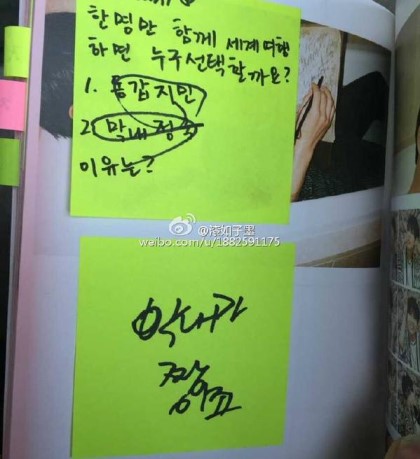 한명만 함께 세계여행
하면 누구선택할까요?
1. 동갑지민
2. 막내정국
이유는?
weibo.com/u/1882591175
막내가
짱이죠